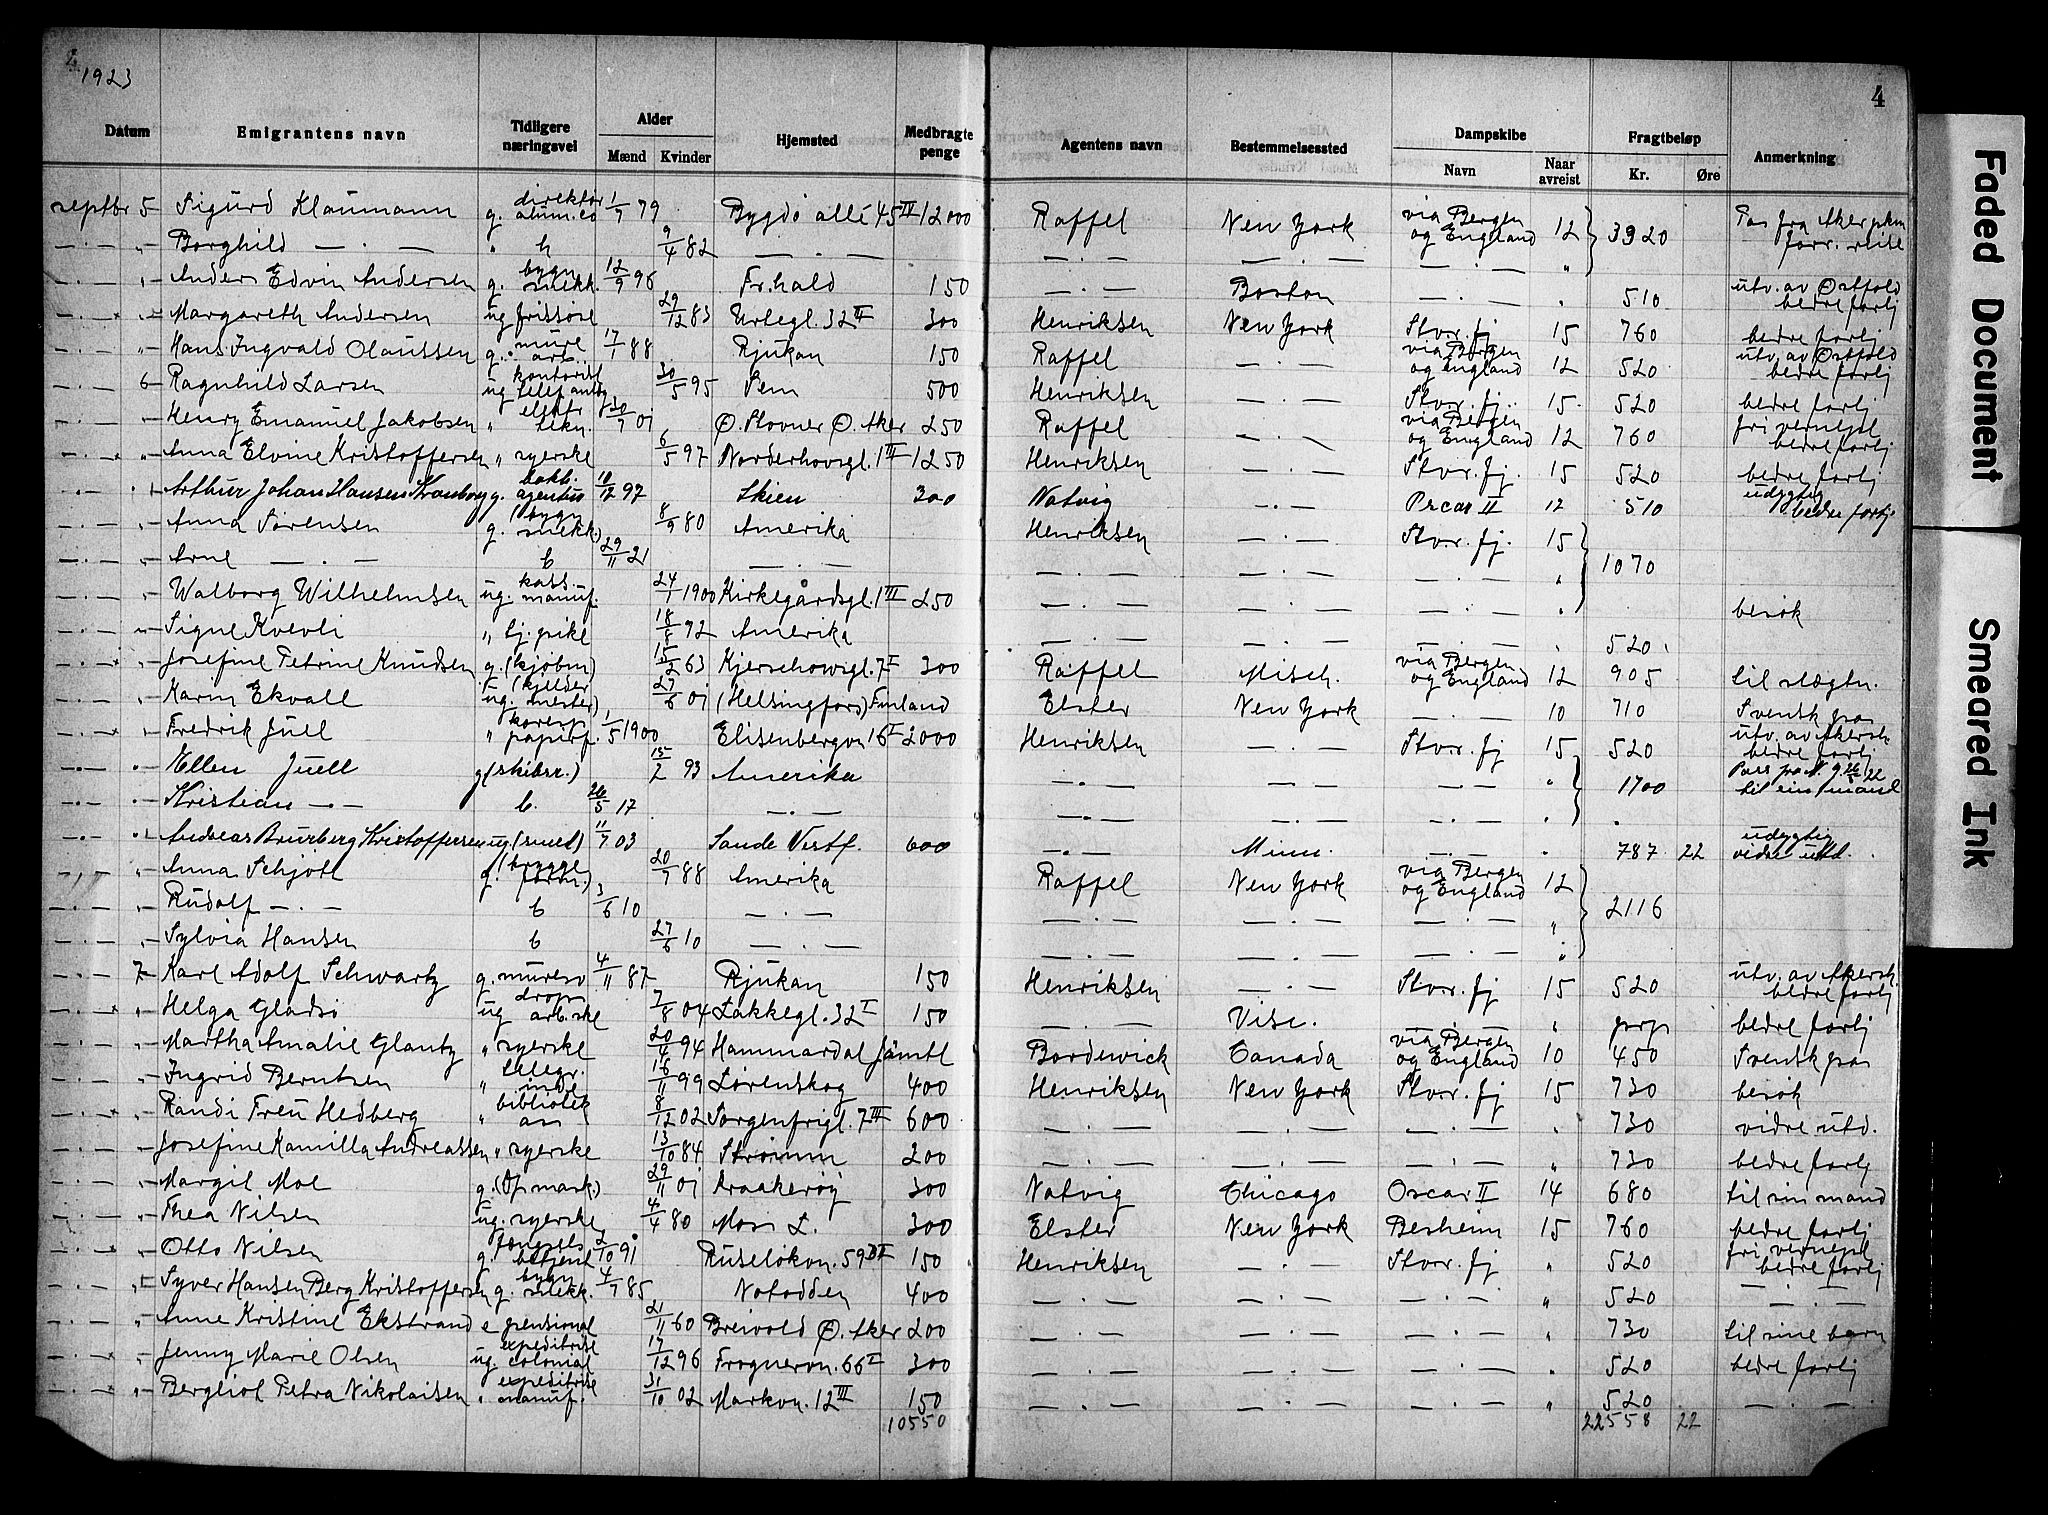 1923
4
Datum Emigrantens navn Tidligere næringsvei Alder Mænd Kvinder Hjemsted Medbragte penge Agentens navn Bestemmelsessted Dampskibe Navn Naar avreist Fragtbeløp Kr. Øre Anmerkning
septbr 5 Sigurd Klaumann g. direktør alum.co 1/7 79 Bygdø allé 45 IV 12000 Raffel New York via Bergen og England 12 3920 Pas fra Aker forr. reise
— . — „ Borghild — . — „ h 9/4 82 — . — — . — — . — — . — „
— . — „ Anders Edvin Andersen g. bygn snekk. 12/9 96 Fr.hald 150 — . — Boston — . — „ 510 utv. av Østfold bedre fortj
— . — „ Margareth Andersen ug frisøse 29/12 83 Urtegt. 32 II 300 Henriksen New York Stvr. fj 15 760 bedre fortj
— . — „ Hans Ingvald Olaussen g. mure arb. 17/1 88 Rjukan 150 Raffel — . — via Bergen og England 12 520 utv. av Østfold bedre fortj
— . — 6 Ragnhild Larsen ug kontorist 30/5 95 Sem 500 Henriksen — . — Stvr. fj. 15 520 bedre fortj
— . — „ Henry Emanuel Jakobsen „ elektr tekn. 30/7 01 Ø. Stovner Ø. Aker 250 Raffel — . — via Bergen og England 12 760 fri vernepl bedre fortj
— . — „ Anna Elvine Kristoffersen „ syerske 6/5 97 Norderhovsgt. 1 III 1250 Henriksen — . — Stvr. fj. 15 520 bedre fortj
— . — „ Arthur Johan Hansen g. agentur 10/12 97 Skien 300 Natvig — . — Oscar II 12 510 udygtig bedre fortj
— . — „ Anna Sørensen g. (bygn snekk.) 8/9 80 Amerika Henriksen — . — Stvr. fj. 15
— . — „ Arne — . — b 29/11 21 — . — — . — — . — — . — „ 1070
— . — „ Walborg Wilhelmsen ug. kass. manuf. 24/1 1900 Kirkegårdsgt. 1 III 250 — . — — . — — . — „ besøk
— . — „ Signe Kvevli „ tj. pike 18/8 92 Amerika — . — — . — — . — „ 520
— . — „ Josefine Petrine Knudsen g. (kjøbm) 15/2 63 Kjerschowsgt. 7 I 300 Raffel Misch. via Bergen og England 12 905 til slægtn.
— . — „ Karin Ekvall ug. (kjelder mester) 27/6 01 (Helsingfors) Finland Elster New York — . — 10 710 Svensk pas
— . — „ Fredrik Juel „ koresp papirf. 1/5 1900 Elisenbergvn 16 I 2000 Henriksen — . — Stvr. fj 15 520 utv. av Akersh. bedre fortj
— . — „ Ellen Juell g (skibsr.) 15/2 93 Amerika — . — — . — — . — „ 1700 til sin mand
— . — „ Kristian — . — b. 26/5 17 — . — — . — — . — — . — „
— . — „ Andreas Buurberg Kristoffersen ug. (smed) 11/7 03 Sande Vestf. 600 — . — Minn. — . — „ 787 22 udygtig vidre utd.
— . — „ Anna Schjøtt g. (brygge form.) 20/7 88 Amerika Raffel New York via Bergen og England 12
— . — „ Rudolf — . — b 3/6 10 — . — — . — — . — — . — „ 2116
— . — „ Sylvia Hansen b 27/6 10 — . — — . — — . — — . — „
— . — 7 Karl Adolf Schwartz g. muresv 4/11 87 Rjukan 150 Henriksen — . — Stvr. fj 15 520 utv. av Akersh. bedre fortj
— . — „ Helga Gladsø ug drops arb.ske 7/8 04 Lakkegt. 32 I 150 — . — Visc. — . — „ prp bedre fortj
— . — „ Martha Amalie Glantz „ syerske 20/4 94 Hammardal Jämtl Bordewick Canada via Bergen og England 10 450 Svensk pas
— . — „ Ingrid Berntsen „ telegr. inde 16/11 99 Lørenskog 400 Henriksen New York Stvr. fj 15 730 besøk
— . — „ Randi Freu Hedberg „ bibliotek as 8/12 02 Sorgenfrigt. 7 III 600 — . — — . — — . — „ 730 vidre utd.
— . — „ Josefine Kamilla Andreassen „ syerske 13/10 84 Strømm 200 — . — — . — — . — „ 730 bedre fortj
— . — „ Margit Moe g. (Op mask.) 29/11 01 Kraakerøy 300 Natvig Chicago Oscar II 14 680 til sin mand
— . — „ Thea Nilsen ug. syerske 4/4 80 Moss L. 300 Elster New York Besheim 15 760 bedre fortj
— . — „ Otto Nilsen g. fængsels betjent 2/10 91 Ruseløkvn. 59 D I 150 Henriksen — . — Stvr. fj „ 520 fri vernepl bedre fortj
— . — „ Syver Hansen Berg Kristoffersen g. bygn snekk. 4/7 85 Notodden 400 — . — — . — — . — „ 520 — . —
— . — „ Anne Kristine Ekstrand e pensional 21/11 60 Breivold Ø. Aker 200 — . — — . — — . — „ 730 til sine barn
— . — „ Jenny Marie Olsen ug. expeditrise colonial 17/12 96 Frognervn. 66 I 300 — . — — . — — . — „ 520 bedre fortj
— . — „ Bergliot Petra Nikolaisen „ expeditrise manuf. 31/10 02 Markvn. 12 III 150 — . — — . — — . — „ 520 — . —
10550 22558 22
Faded Document
Smeared Ink